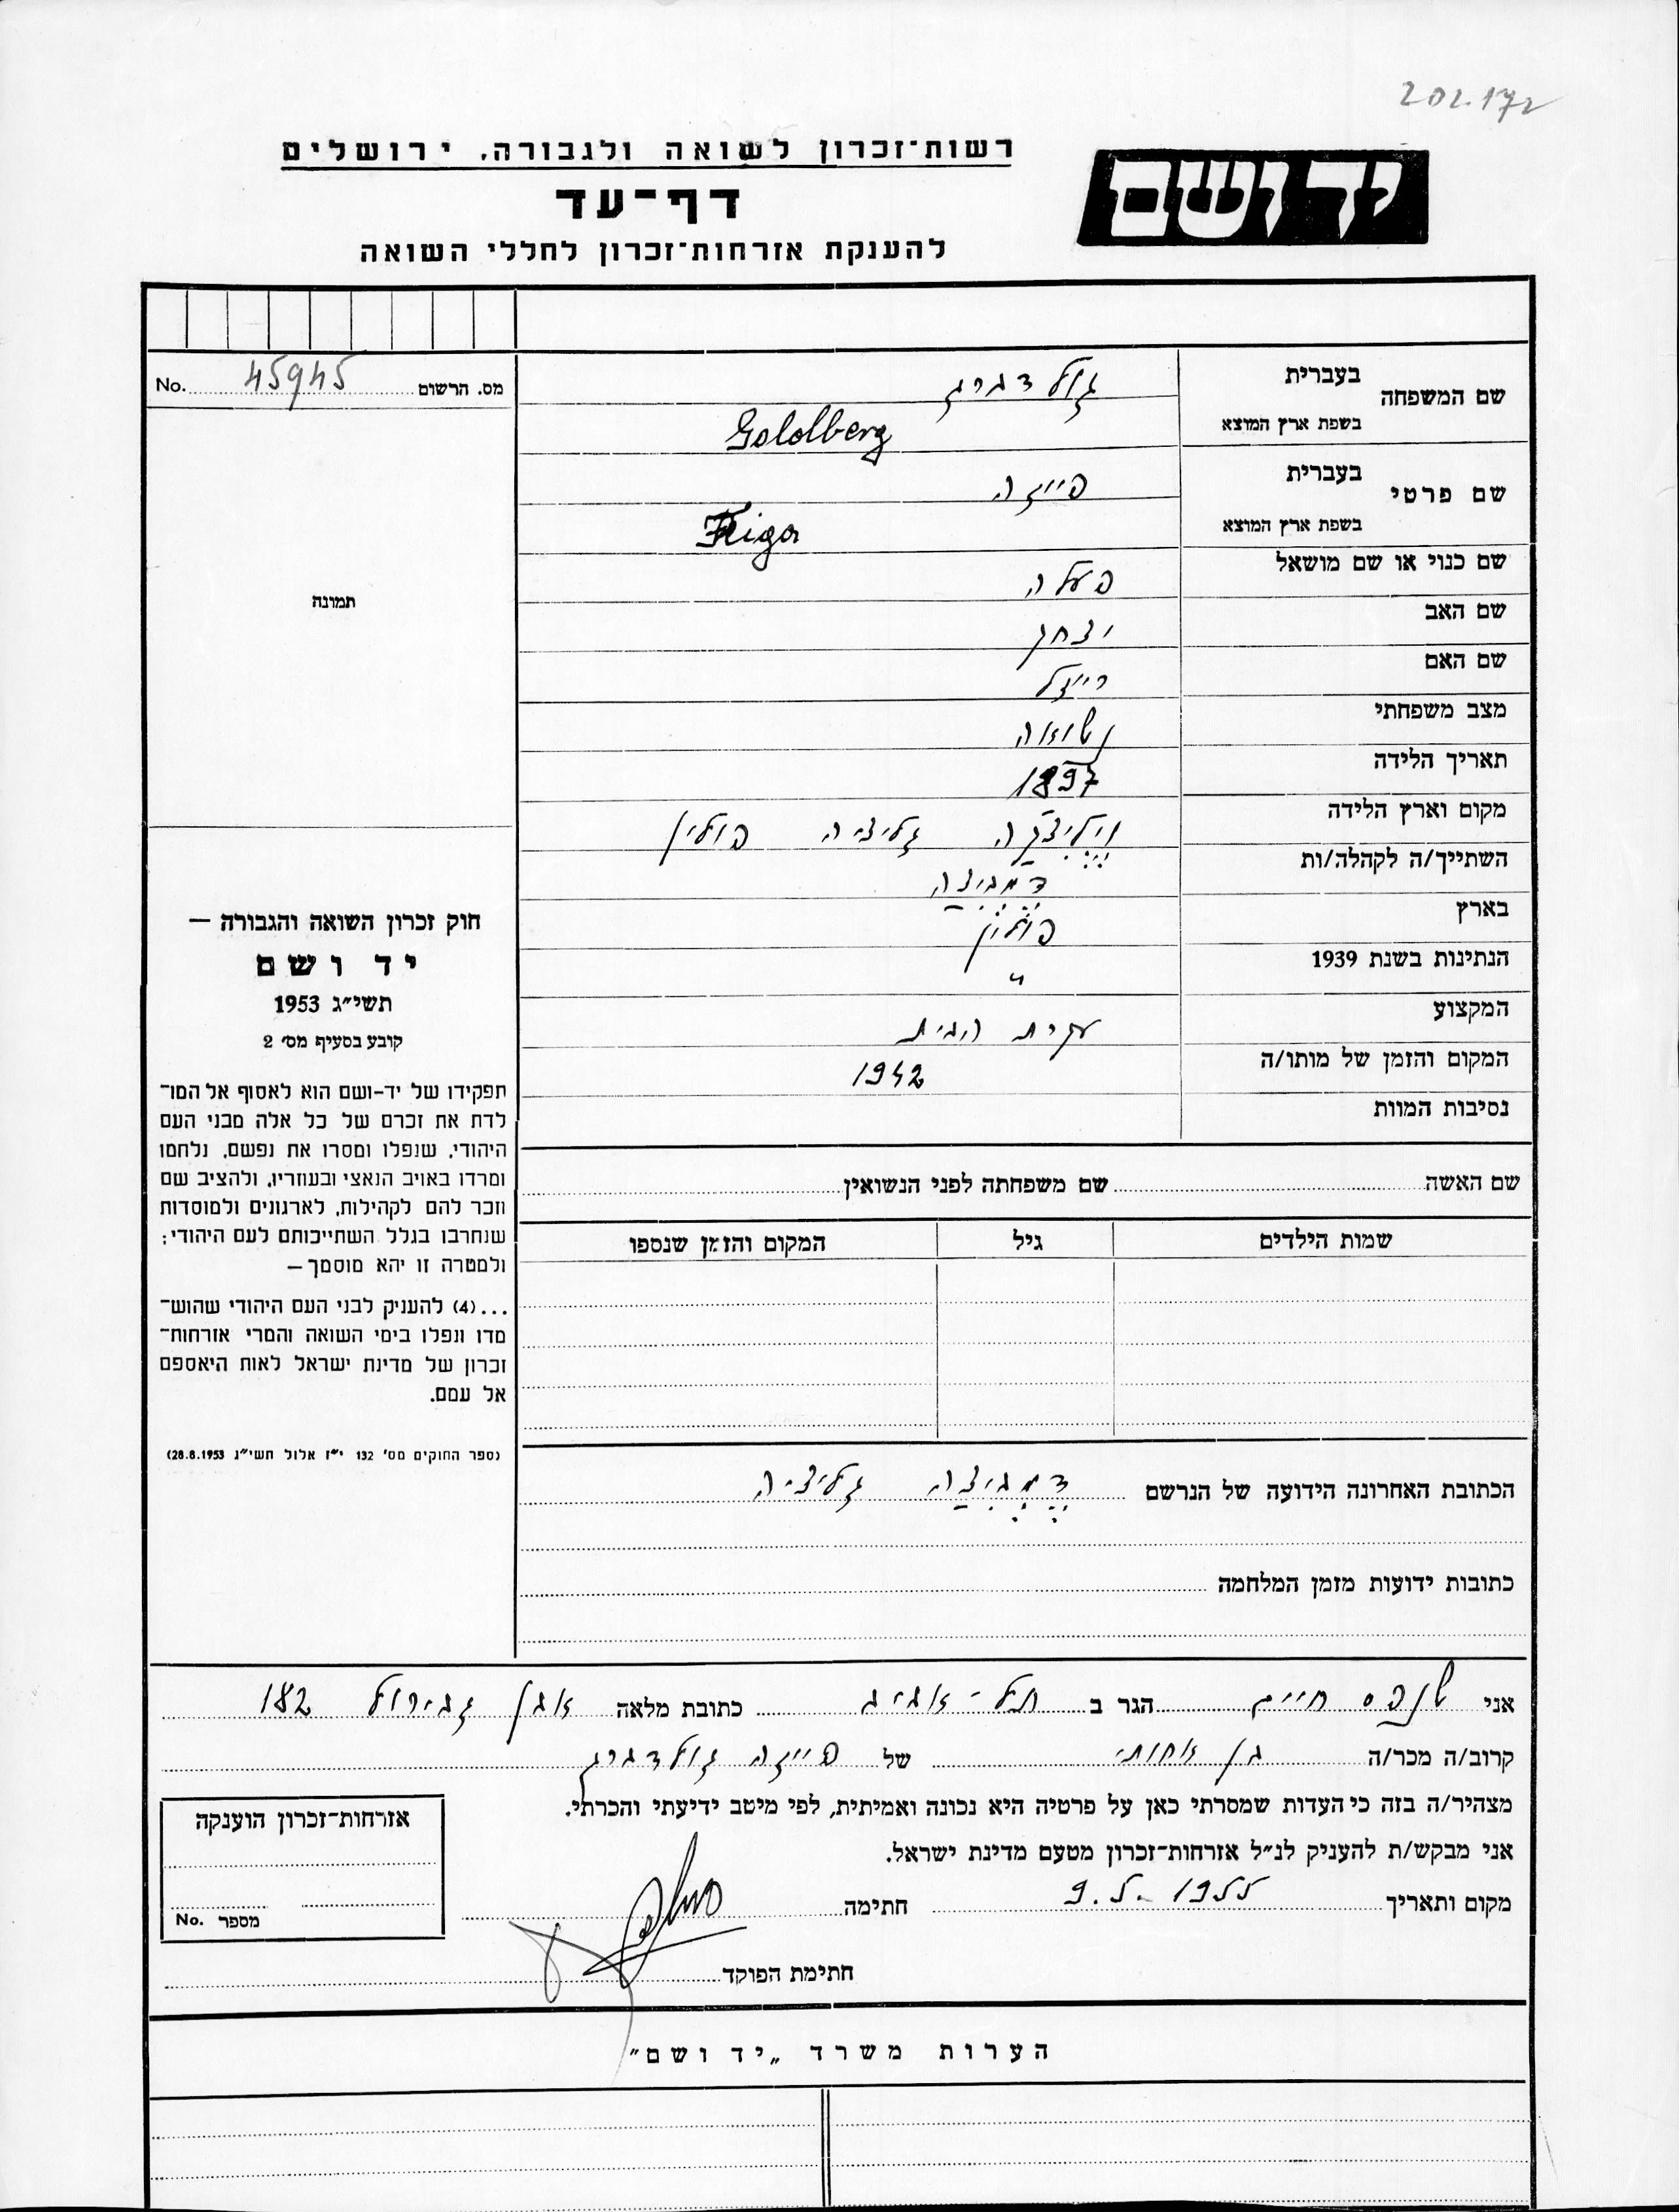 202.172
רשות־זכרון לשואה ולגבורה, ירושלים
יד ושם
דף־עד
להענקת אזרחות־זכרון לחללי השואה
מס. הרשום 45945 No.
תמונה
שם המשפחה
בעברית גולדברג
בשפת ארץ המוצא Goldberg
שם פרטי
בעברית פייגה
בשפת ארץ המוצא Feiga
שם כנוי או שם מושאל פעלה
שם האב יצחק
שם האם רייזל
מצב משפחתי נשואה
תאריך הלידה 1897
מקום וארץ הלידה וֶיֶלִיצְקָה גליציה פולין
השתייך/ה לקהלה/ות דֶמְבִּיצַה
בארץ פולין
הנתינות בשנת 1939 "
המקצוע עקרת הבית
המקום והזמן של מותו/ה 1942
נסיבות המוות
חוק זכרון השואה והגבורה —
יד ושם
תשי״ג 1953
קובע בסעיף מס׳ 2
תפקידו של יד-ושם הוא לאסוף אל המו־
לדת את זכרם של כל אלה מבני העם
היהודי, שנפלו ומסרו את נפשם, נלחמו
ומרדו באויב הנאצי ובעוזריו, ולהציב שם
וזכר להם לקהילות, לארגונים ולמוסדות
שנחרבו בגלל השתייכותם לעם היהודי;
ולמטרה זו יהא מוסמך —
...(4) להעניק לבני העם היהודי שהוש־
מדו ונפלו בימי השואה והמרי אזרחות־
זכרון של מדינת ישראל לאות היאספם
אל עמם.
(ספר החוקים מס׳ 132 י״ז אלול תשי״ג 28.8.1953)
שם האשה שם משפחתה לפני הנשואין
שמות הילדים גיל המקום והזמן שנספו
הכתובת האחרונה הידועה של הנרשם דֶמְבִּיצַה גליציה
כתובות ידועות מזמן המלחמה
אני חיים הגר ב תל-אביב כתובת מלאה אבן גבירול 182
קרוב/ה מכר/ה בן אחותי של פייגה גולדברג
מצהיר/ה בזה כי העדות שמסרתי כאן על פרטיה היא נכונה ואמיתית, לפי מיטב ידיעתי והכרתי.
אני מבקש/ת להעניק לנ״ל אזרחות־זכרון מטעם מדינת ישראל.
מקום ותאריך 9.5.1955 חתימה
חתימת הפוקד
אזרחות־זכרון הוענקה
מספר No.
הערות משרד „יד ושם"